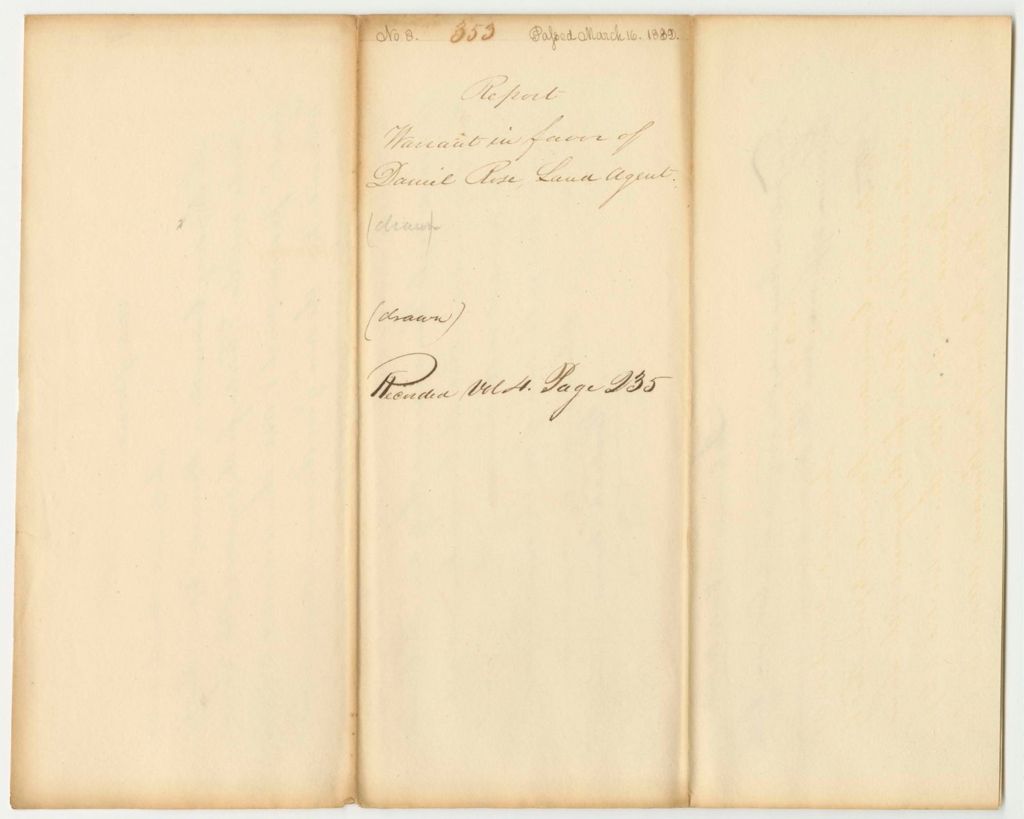 No 8. 353 Passed March 16. 1830.
Report
Warrant in favor of
Daniel Rose, Land Agent.
(drawn)
(drawn)
Recorded Vol 4. Page 235